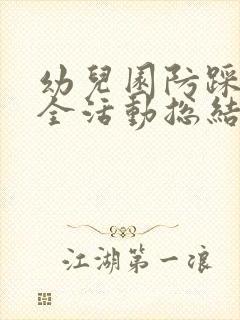 幼兒園防踩
全活動總結
江湖第一浪